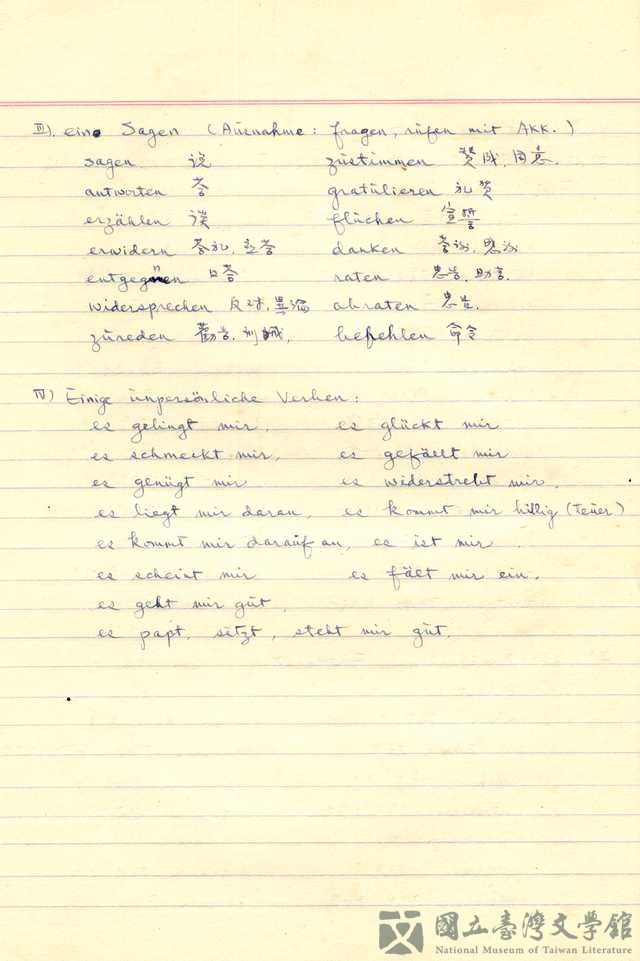 III). eine Sagen (Ausnahme: fragen, rufen mit AKK.)
sagen 说 zustimmen 贊成, 同意.
antworten 答 gratulieren 礼贊
erzählen fluchen 宣誓
erwidern 答礼, danken 答谢, 恩谢
entgegnen 口答 raten 忠告, 助言.
widersprechen 反对, 異論 abraten 忠告.
zureden 勸言, befehlen 命令
IV) Einige unpersönliche Verben:
es gelingt mir. es glückt mir
es schmeckt mir, es gefällt mir
es genügt mir es widerstrebt mir.
es liegt mir daran, es kommt mir billig (teuer)
es kommt mir darauf an, es ist mir.
es scheint mir es fält mir ein.
es geht mir gut,
es papt, sitzt, steht mir gut.
國立臺灣文學館
National Museum of Taiwan Literature